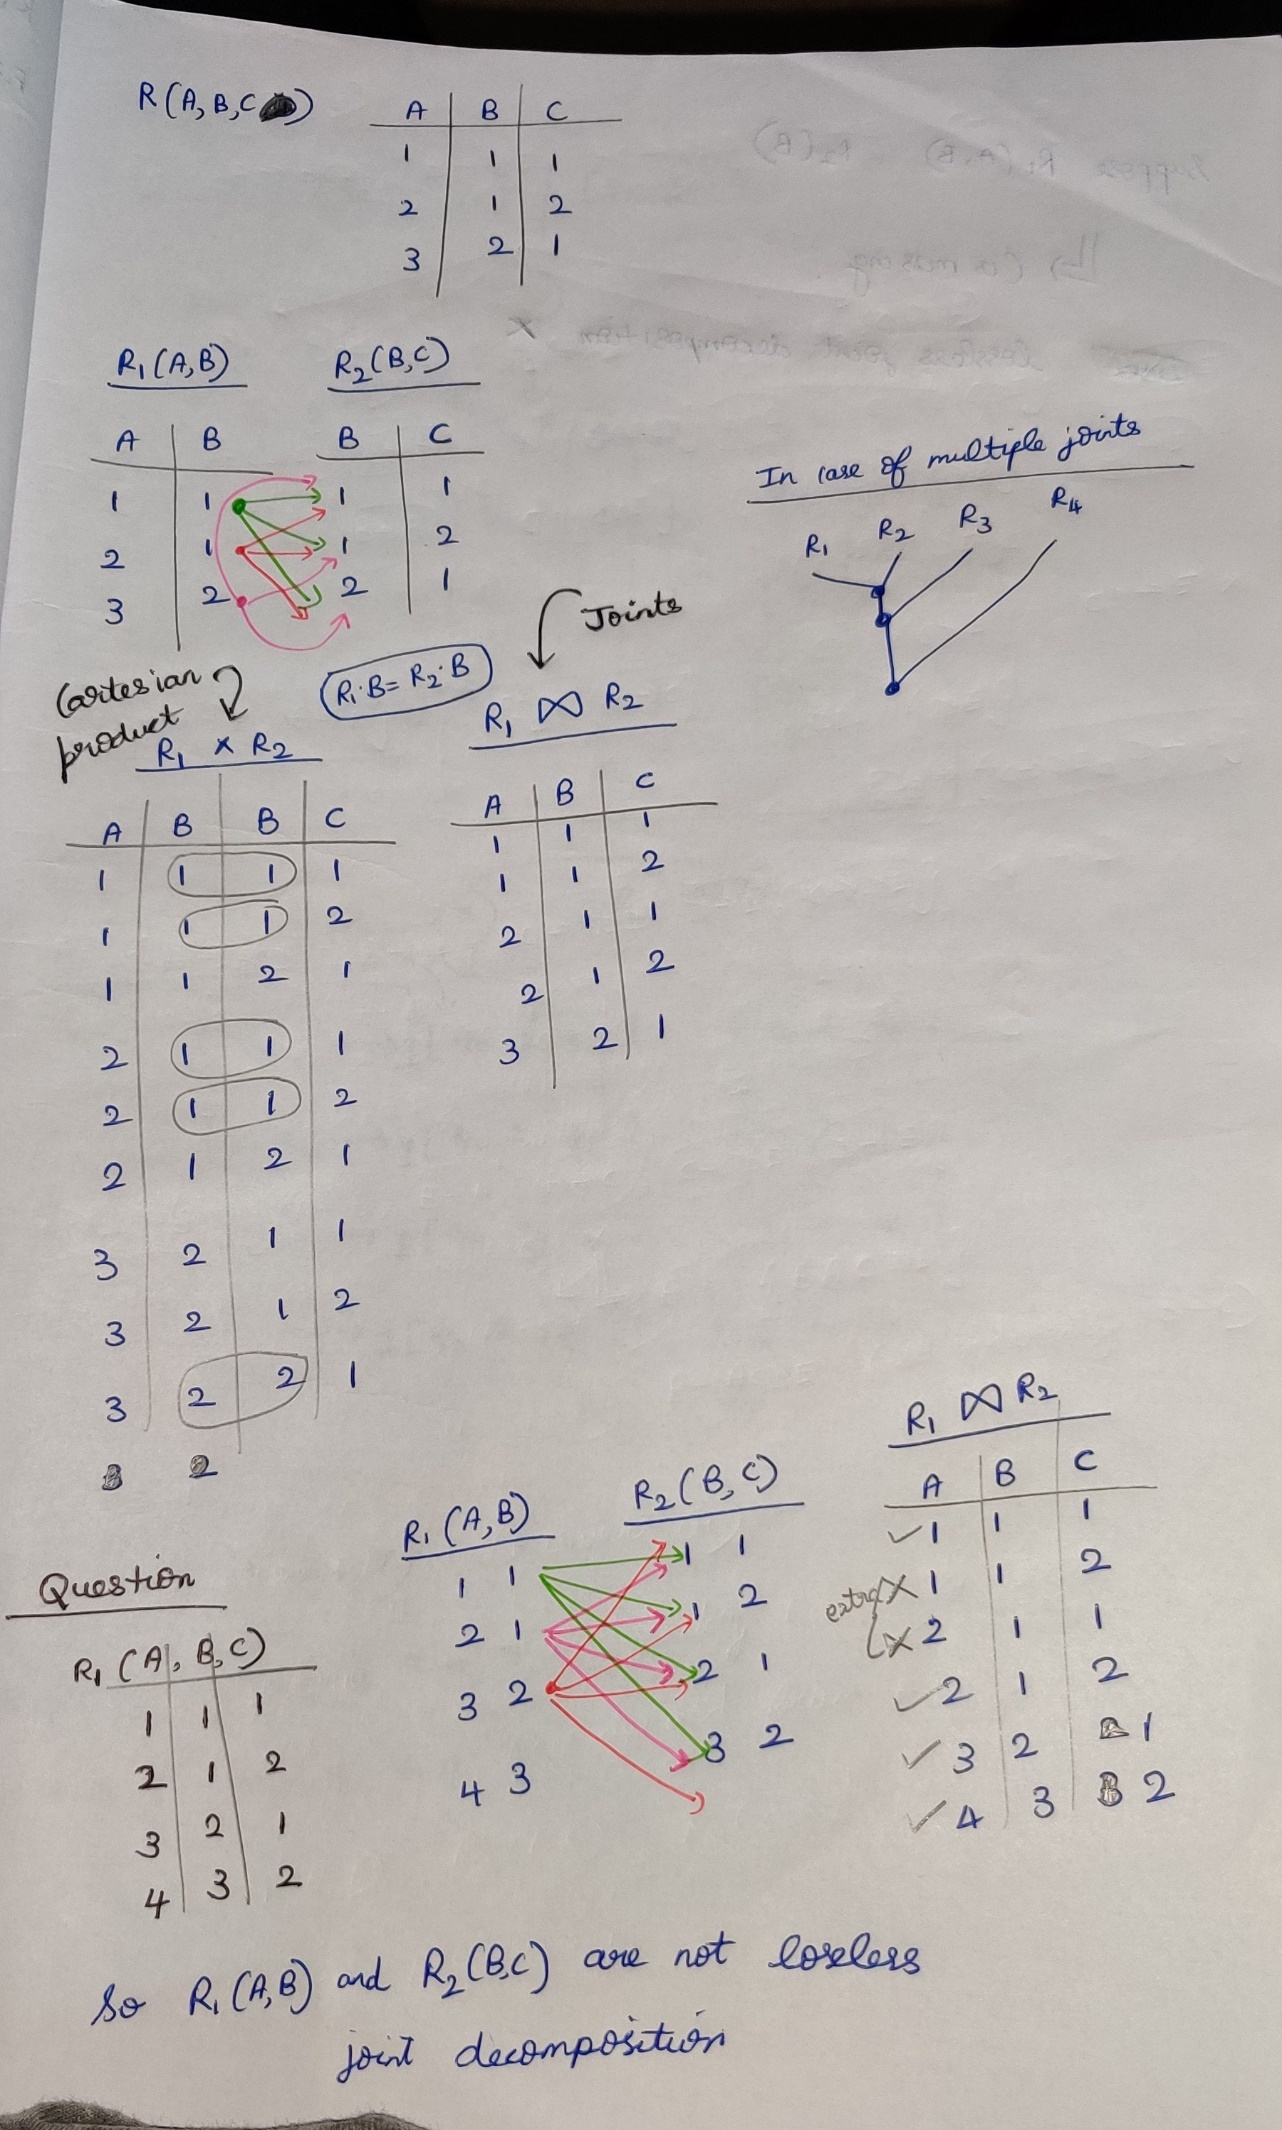 R(A,B,C)
A B C
1 1 1
2 1 2
3 2 1
R1(A,B)
A B
1 1
2 1
3 2
R2(B,C)
B C
1 1
1 2
2 1
In case of multiple joints
R1 R2 R3 R4
Cartesian
product
R1 x R2
A B B C
1 1 1 1
1 1 1 2
1 1 2 1
2 1 1 1
2 1 1 2
2 1 2 1
3 2 1 1
3 2 1 2
3 2 2 1
2
R1·B = R2·B
Joints
R1 ⋈ R2
A B C
1 1 1
1 1 2
2 1 1
2 1 2
3 2 1
Question
R1(A,B,C)
1 1 1
2 1 2
3 2 1
4 3 2
R1(A,B)
1 1
2 1
3 2
4 3
R2(B,C)
1 1
1 2
2 1
3 2
R1 ⋈ R2
A B C
✓ 1 1 1
extra x 1 1 2
x 2 1 1
✓ 2 1 2
✓ 3 2 1
✓ 4 3 2
So R1(A,B) and R2(B,C) are not loseless
joint decomposition